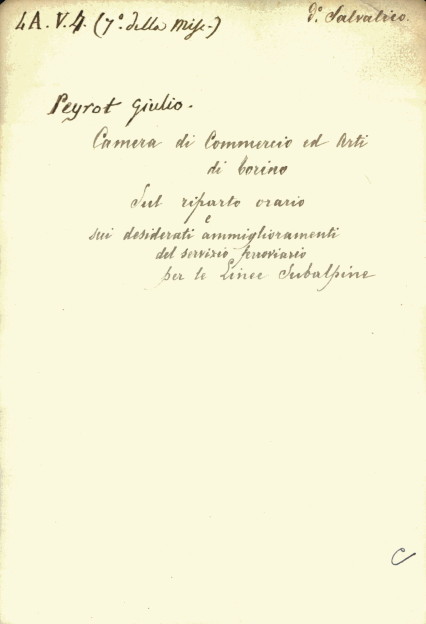 4A. V. 4. (7°. della Misc.)
d.° Salvatico.
Peyrot Giulio.
Camera di Commercio ed Arti
di Torino
Sul riparto orario
e
sui desiderati ammiglioramenti
del servizio ferroviario
per le Linee Subalpine
C